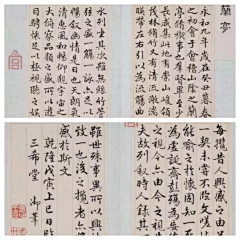 蘭亭
永和九年歲在癸丑暮春
初會于會稽山陰之蘭
亭脩禊事也羣賢畢至
茂林脩竹又有清流激湍
水列坐其次雖無絲竹管
弦之盛一觴一詠亦足以
暢叙幽情是日也天朗氣
清惠風和暢仰觀宇宙之
大俯察品類之盛所以遊
目騁懷足以極視聽之娛
每攬昔人興感之由若合
一契未嘗不臨文嗟悼不
能喻之於懷固知一死生
為虛誕齊彭殤為妄作後
之視今亦由今之視昔悲
夫故列叙時人錄其所
雖世殊事異所以興懷其
致一也後之攬者亦將有
感於斯文
乾隆戊寅上巳日臨
三希堂御筆